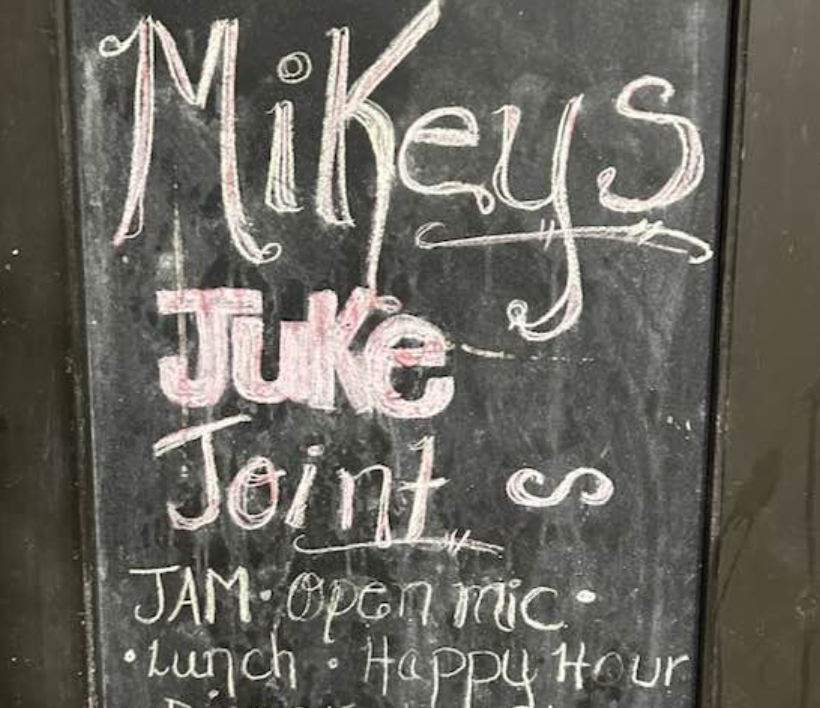 Mikeys
Juke
Joint
JAM · Open mic ·
· Lunch · Happy Hour